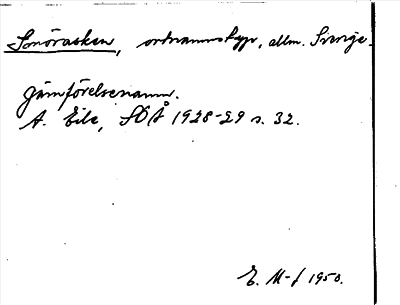 Smörasken, ortnamnstyp, allm. Sverige.
Jämförelsenamn.
A. Eilc, SOÅ 1928-29 s. 32.
E. M-f 1950.